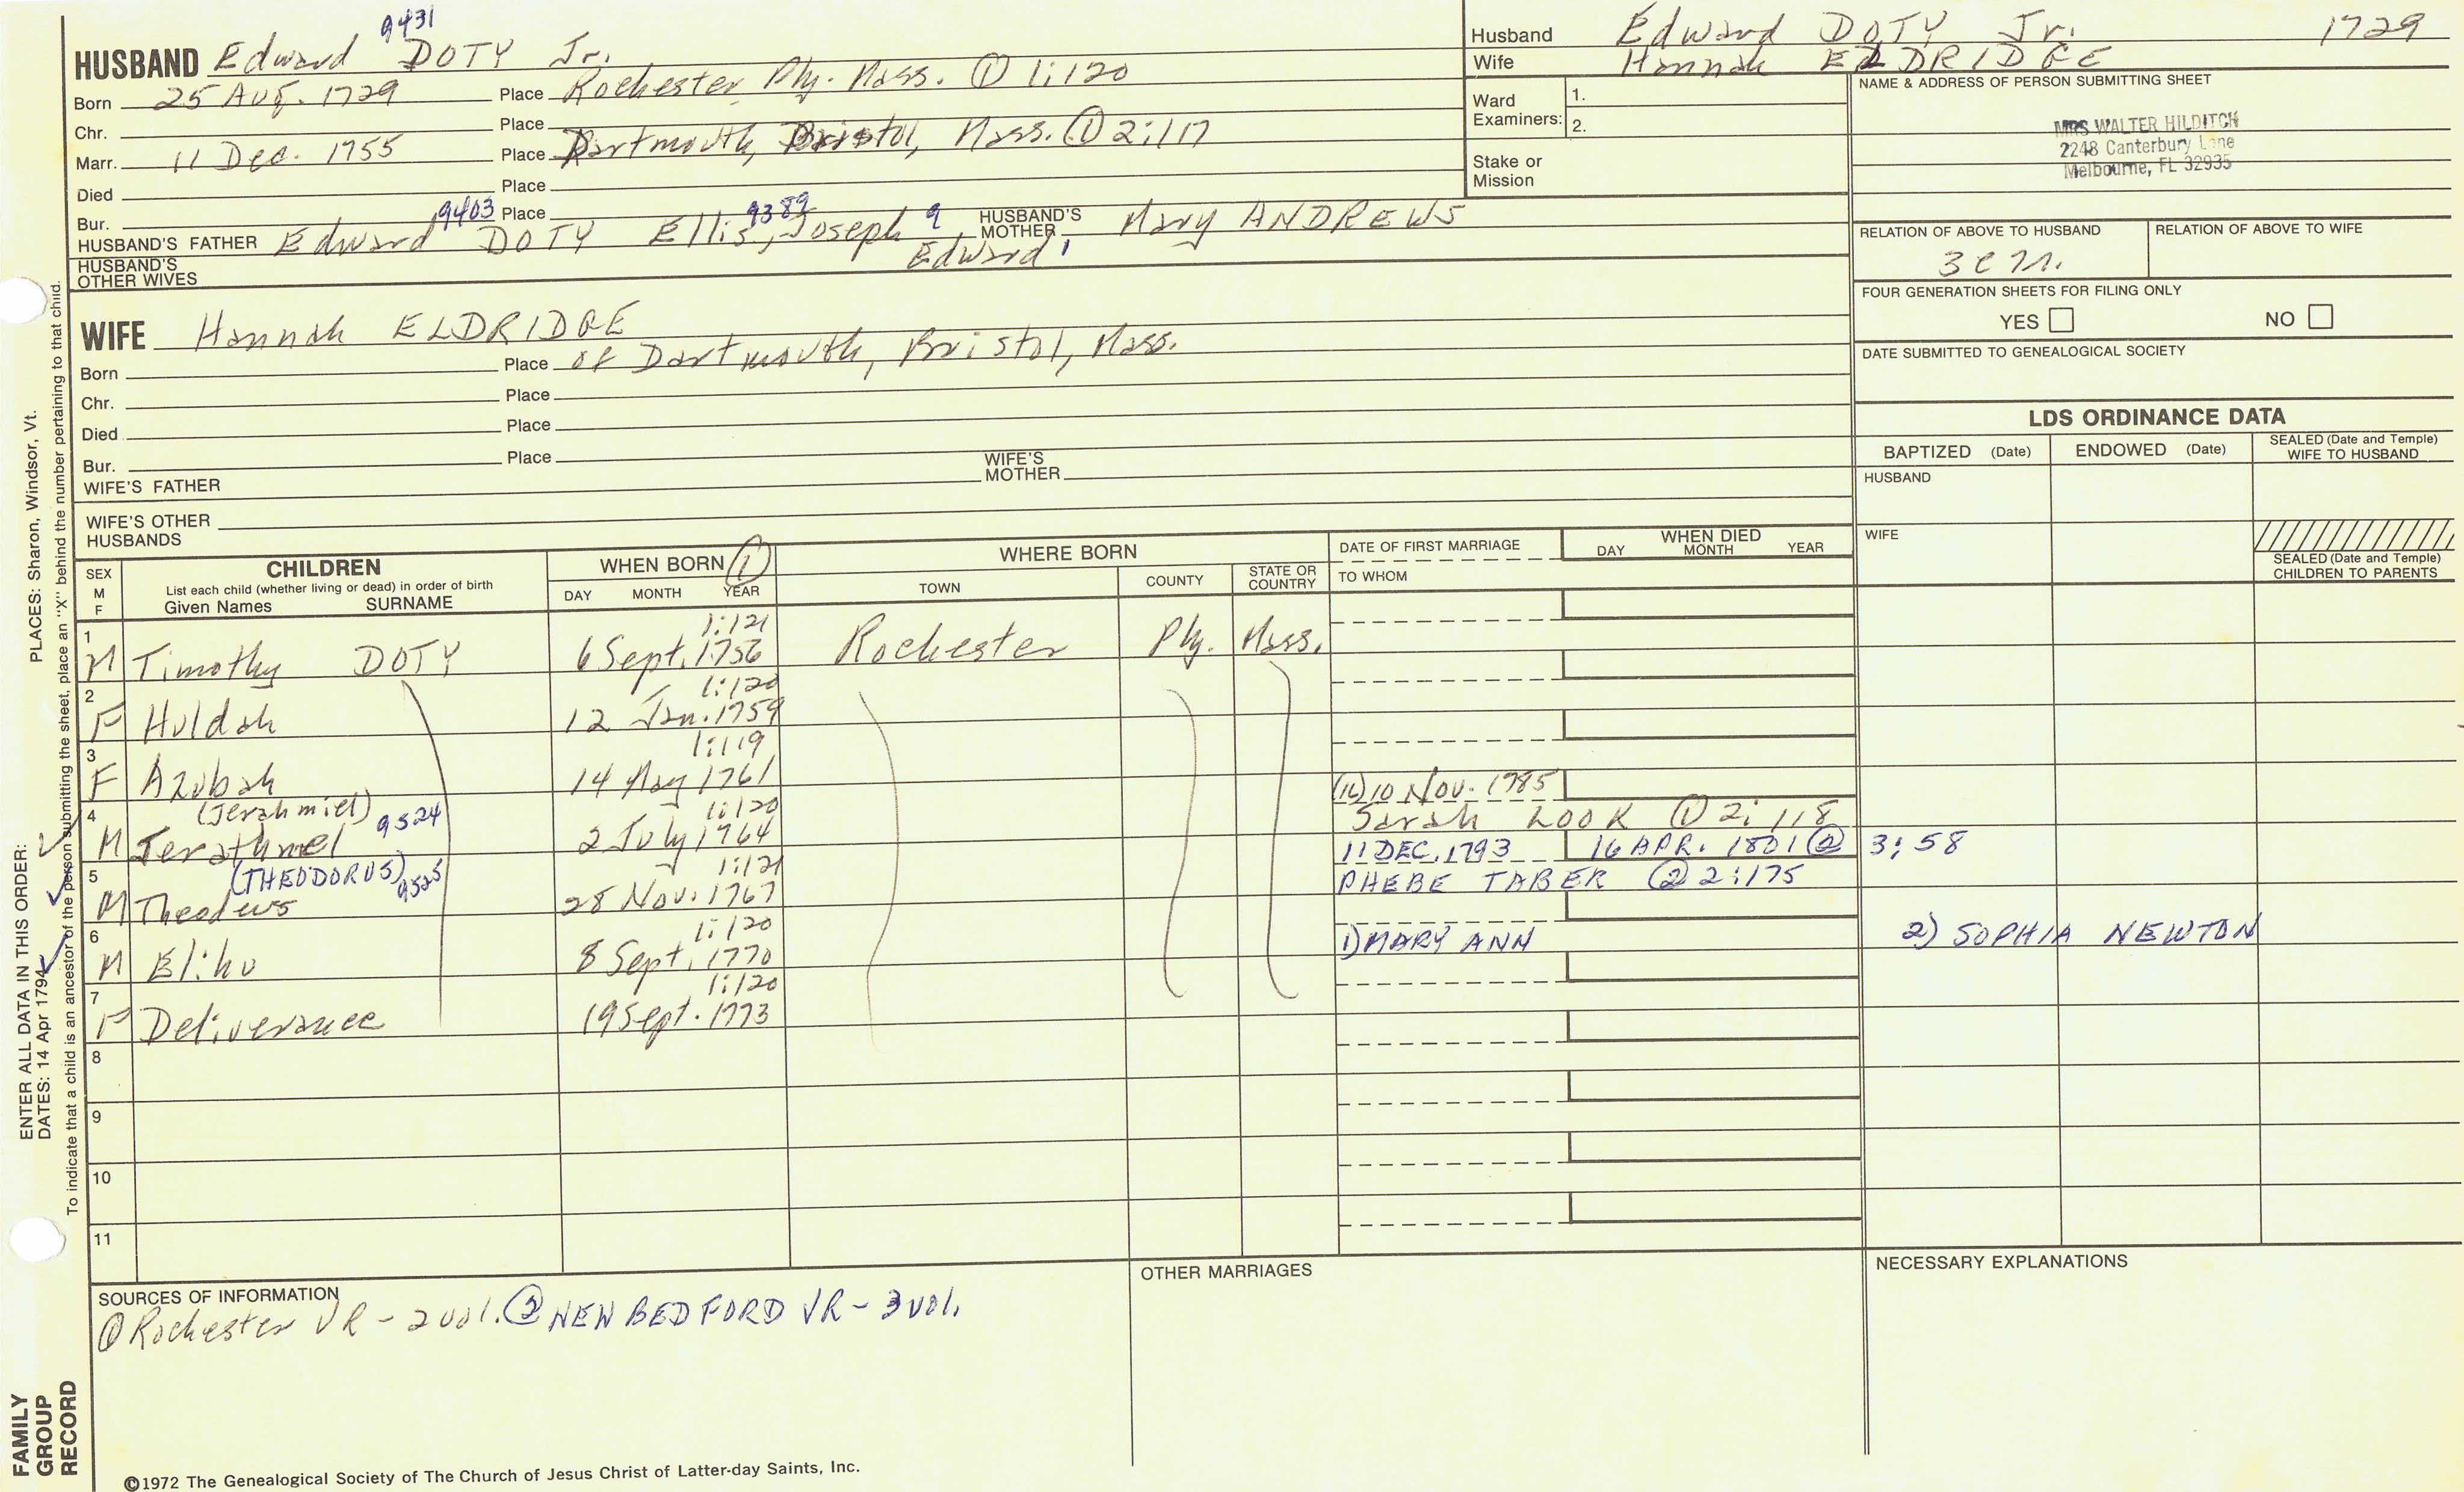 HUSBAND Edward DOTY Jr. 9431
Born 25 Aug. 1729 Place Rochester Ply. Mass. ① 1:120
Chr. Place
Marr. 11 Dec. 1755 Place Dartmouth, Bristol, Mass. ① 2:117
Died Place
Bur. Place
HUSBAND'S FATHER Edward DOTY 9403 Ellis, 9389 Joseph 9 Edward 1 HUSBAND'S MOTHER Mary ANDREWS
HUSBAND'S OTHER WIVES
WIFE Hannah ELDRIDGE
Born Place of Dartmouth, Bristol, Mass.
Chr. Place
Died Place
Bur. Place
WIFE'S FATHER WIFE'S MOTHER
WIFE'S OTHER HUSBANDS
Husband Edward DOTY Jr. 1729
Wife Hannah ELDRIDGE
Ward Examiners: 1.
2.
Stake or Mission
NAME & ADDRESS OF PERSON SUBMITTING SHEET
MRS WALTER HILDITCH
2248 Canterbury Lane
Melbourne, FL 32935
RELATION OF ABOVE TO HUSBAND RELATION OF ABOVE TO WIFE
FOUR GENERATION SHEETS FOR FILING ONLY
YES NO
DATE SUBMITTED TO GENEALOGICAL SOCIETY
LDS ORDINANCE DATA
BAPTIZED (Date) ENDOWED (Date) SEALED (Date and Temple) WIFE TO HUSBAND
HUSBAND
WIFE
SEALED (Date and Temple) CHILDREN TO PARENTS
SEX M F
CHILDREN
List each child (whether living or dead) in order of birth
Given Names SURNAME
WHEN BORN ①
DAY MONTH YEAR
WHERE BORN
TOWN COUNTY STATE OR COUNTRY
DATE OF FIRST MARRIAGE
TO WHOM
WHEN DIED
DAY MONTH YEAR
1 1:121
M Timothy DOTY 6 Sept. 1756 Rochester Ply. Mass.
2 1:120
F Huldah 12 Jan. 1759
3 1:119
F Azubah 14 May 1761
4 (Jerahmiel) 9524 1:120 10 Nov. 1785
M Jerathmel 2 July 1764 Sarah LOOK ① 2:118
5 (THEODORUS) 9525 1:121 11 DEC. 1793 16 APR. 1801 ② 3:58
M Theodews 28 Nov. 1767 PHEBE TABER ② 2:175
6 1:120 1) MARY ANN 2) SOPHIA NEWTON
M Elihu 8 Sept. 1770
7 1:120
F Deliverance 19 Sept. 1773
8
9
10
11
SOURCES OF INFORMATION
① Rochester VR - 2 vol. ② NEW BEDFORD VR - 3 vol.
OTHER MARRIAGES
NECESSARY EXPLANATIONS
ENTER ALL DATA IN THIS ORDER:
DATES: 14 Apr 1794 PLACES: Sharon, Windsor, Vt.
To indicate that a child is an ancestor of the person submitting the sheet, place an "X" behind the number pertaining to that child.
FAMILY GROUP RECORD
©1972 The Genealogical Society of The Church of Jesus Christ of Latter-day Saints, Inc.